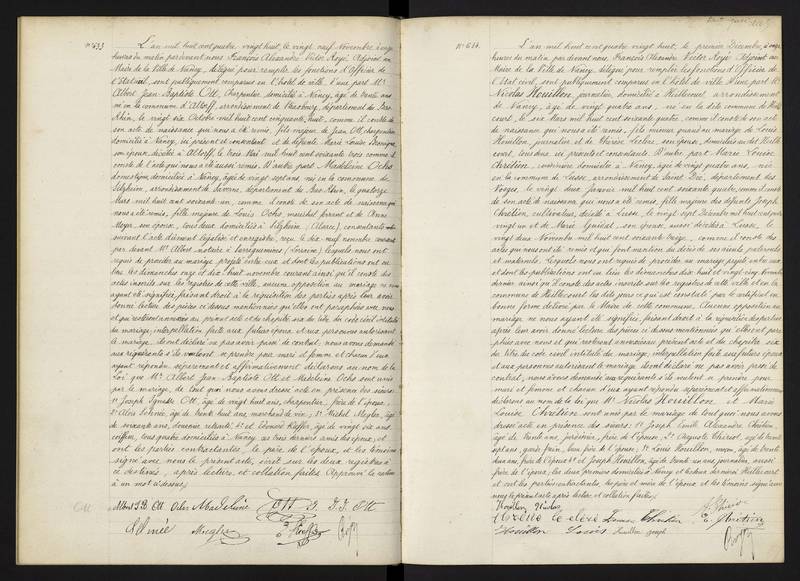 N° 633
L'an mil huit cent quatre vingt huit, le vingt neuf Novembre, à onze
heures du matin par devant nous François Alexandre Victor Royé, Adjoint au
Maire de la Ville de Nancy, délégué pour remplir les fonctions d'Officier de
l'Etat civil, sont publiquement comparus en l'hôtel de ville, d'une part Mr.
Albert Jean-Baptiste Ott, Charpentier, domicilié à Nancy, âgé de trente ans
né en la commune d'Altorff, arrondissement de Strasbourg, département du Bas-
Rhin, le vingt six Octobre mil huit cent cinquante huit, comme il conste de
son acte de naissance qui nous a été remis, fils majeur de Jean Ott, charpentier
domicilié à Nancy, ici présent et consentant et de défunte Marie Louise
son épouse, décédée à Altorff, le
conste de l'acte qui nous a été aussi remis. D'autre part Madeleine Ochs
domestique, domiciliée à Nancy, âgée de vingt sept ans, née en la commune de
arrondissement de Saverne, département du Bas-Rhin, le quatorze
Mars mil huit cent soixante un, comme il conste de son acte de naissance qui
nous a été remis, fille majeure de Louis Ochs, maréchal ferrant et de Anne
Meyer, son épouse, tous deux domiciliés à
par devant Me. Albert notaire à Sarreguemines (Lorraine), lesquels nous ont
requis de procéder au mariage projeté entre eux et dont les publications ont eu
lieu les dimanches onze et dix huit novembre courant ainsi qu'il conste des
actes inscrits sur les registres de cette ville, aucune opposition au mariage ne nous
ayant été signifiée, faisant droit à la réquisition des parties, après leur avoir
donné lecture des pièces ci-dessus mentionnées qu'elles ont paraphées avec nous
et qui resteront annexées au présent acte et du chapitre six du titre du code civil intitulé
du mariage, interpellation faite aux futurs époux et aux personnes autorisant
le mariage, ils ont déclaré ne pas avoir passé de contrat; nous avons demandé
aux requérants s'ils veulent se prendre pour mari et femme et chacun d'eux
ayant répondu séparément et affirmativement déclarons au nom de la
Loi que Mr. Albert Jean-Baptiste Ott et Madeleine Ochs sont unis
par le mariage, de tout quoi nous avons dressé acte en présence des sieurs:
1° Joseph Ignace Ott, âgé de vingt huit ans, charpentier, frère de l'époux;
2° Aloïs âgé de trente huit ans, marchand de vin; 3° Michel Mugler, âgé
de soixante ans, douanier retraité; 4° et Edouard Kieffer, âgé de vingt six ans,
coiffeur, tous quatre domiciliés à Nancy, les trois derniers amis des époux, et
ont les parties contractantes, le père de l'époux, et les témoins
signé avec nous le présent acte, écrit sur les deux registres à
ce destinés, après lecture et collation faites. Approuvé la rature
d'un mot ci-dessus.
Ott
Albert J B Ott Ochs Madeleine Ott J. I. Ott
Mugler Kieffer Royé
N° 634.
L'an mil huit cent quatre vingt huit, le premier Décembre, à onze
heures du matin, par devant nous François Alexandre Victor Royé, Adjoint au
Maire de la Ville de Nancy, délégué pour remplir les fonctions d'Officier de
l'Etat civil, sont publiquement comparus en l'hôtel de ville, d'une part Mr.
Nicolas Houillon, journalier, domicilié à Heillecourt, arrondissement
de Nancy, âgé de vingt quatre ans, né en la dite commune de Heille-
court, le six Mars mil huit cent soixante quatre, comme il conste de son acte
de naissance qui nous a été remis, fils mineur quant au mariage de Louis
Houillon, journalier et de Thérèse Leclere, son épouse, domiciliés au dit Heille-
court, tous deux ici présents et consentants. D'autre part Marie Louise
Chrétien, couturière, domiciliée à Nancy, âgée de vingt quatre ans, née
en la commune de Lusse, arrondissement de Saint Dié, département des
Vosges, le vingt deux Janvier mil huit cent soixante quatre, comme il conste
de son acte de naissance, qui nous a été remis, fille majeure des défunts Joseph
Chrétien, cultivateur, décédé à Lusse, le vingt sept Décembre mil huit cent quatre
vingt un et de Marie son épouse, aussi décédée à Lusse, le
vingt deux Novembre mil huit cent soixante treize, comme il conste des
actes qui nous ont été remis et qui font mention du décès de ses aïeuls paternels
et maternels. Lesquels nous ont requis de procéder au mariage projeté entre eux
et dont les publications ont eu lieu les dimanches dix huit et vingt cinq Novembre
dernier ainsi qu'il conste des actes inscrits sur les registres de cette ville et en la
commune de Heillecourt les dits jours ce qui est constaté par le certificat en
bonne forme délivré par le Maire de cette commune. Aucune opposition au
mariage ne nous ayant été signifiée, faisant droit à la réquisition des parties
après leur avoir donné lecture des pièces ci-dessus mentionnées qu'elles ont para-
phées avec nous et qui resteront annexées au présent acte et du chapitre six
du titre du code civil intitulé du mariage, interpellation faite aux futurs époux
et aux personnes autorisant le mariage, ils ont déclaré ne pas avoir passé de
contrat, nous avons demandé aux requérants s'ils veulent se prendre pour
mari et femme et chacun d'eux ayant répondu séparément et affirmativement
déclarons au nom de la loi que Mr. Nicolas Houillon et Marie
Louise Chrétien sont unis par le mariage de tout quoi nous avons
dressé acte en présence des sieurs: 1° Joseph Emile Alexandre Chrétien,
âgé de trente ans, frère de l'épouse; 2° Auguste Thiriet, âgé de trente
sept ans, beau frère de l'épouse; 3° Louis Houillon, âgé de trente
ans, frère de l'époux; 4° et Joseph Houillon, âgé de trente un ans, journalier, aussi
frère de l'époux, les deux premiers domiciliés à Nancy et les deux derniers à Heillecourt
et ont les parties contractantes, les père et mère de l'époux et les témoins signé avec
nous le présent acte après lecture et collation faites.
Houillon Nicolas
Thérèse Leclere Louise Chrétien A. Thiriet
Houillon Louis Houillon Joseph E. Chrétien
Royé